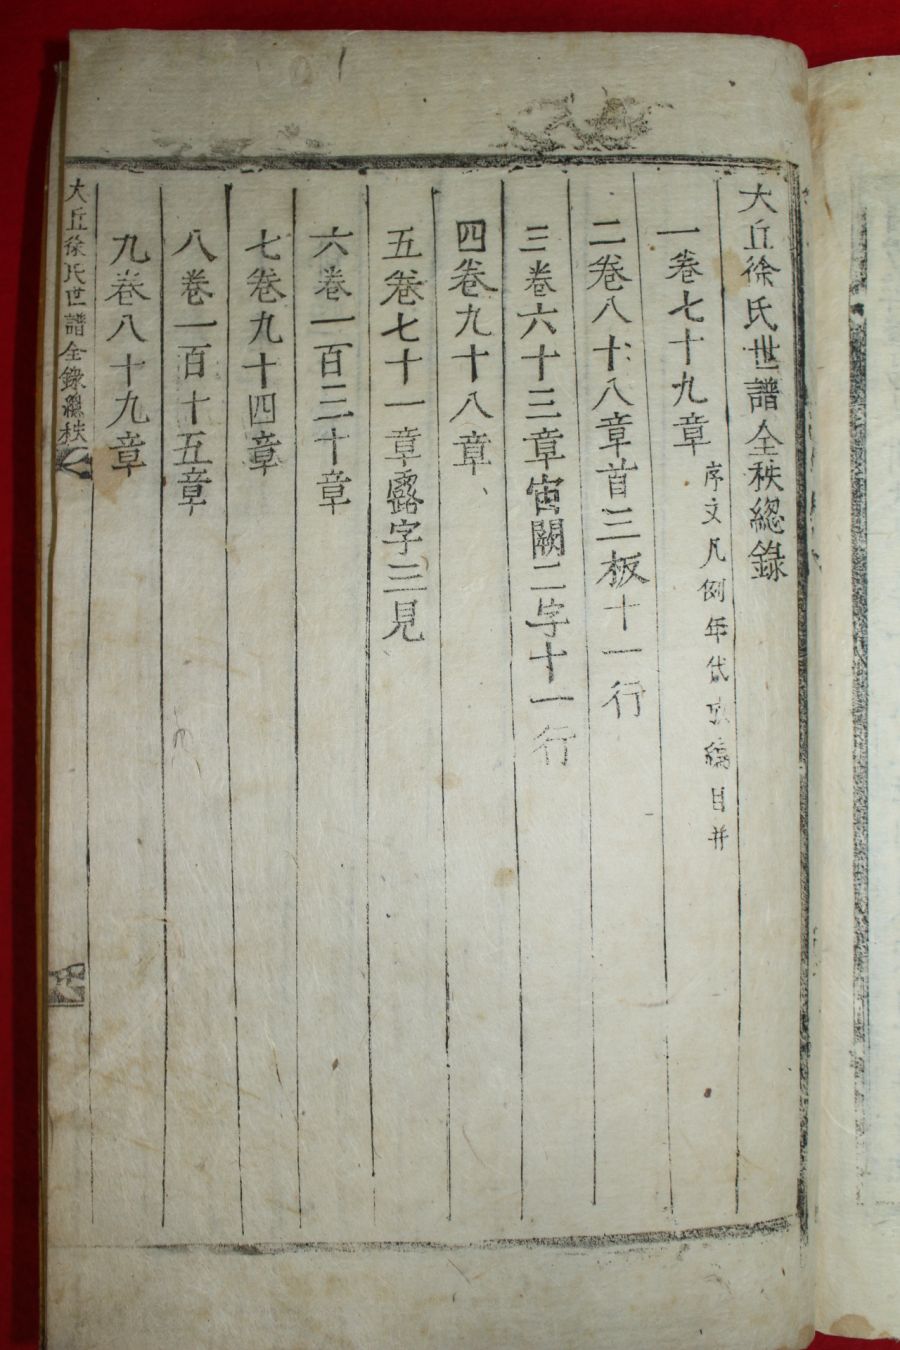 大丘徐氏世譜全秩總錄
一卷七十九章序文凡例年代 編目并
二卷八十八章首三板十一行
三卷六十三章 闕二字十一行
四卷九十八章
五卷七十一章露字三見
六卷一百三十章
七卷九十四章
八卷一百十五章
九卷八十九章
大丘徐氏世譜全錄總秩